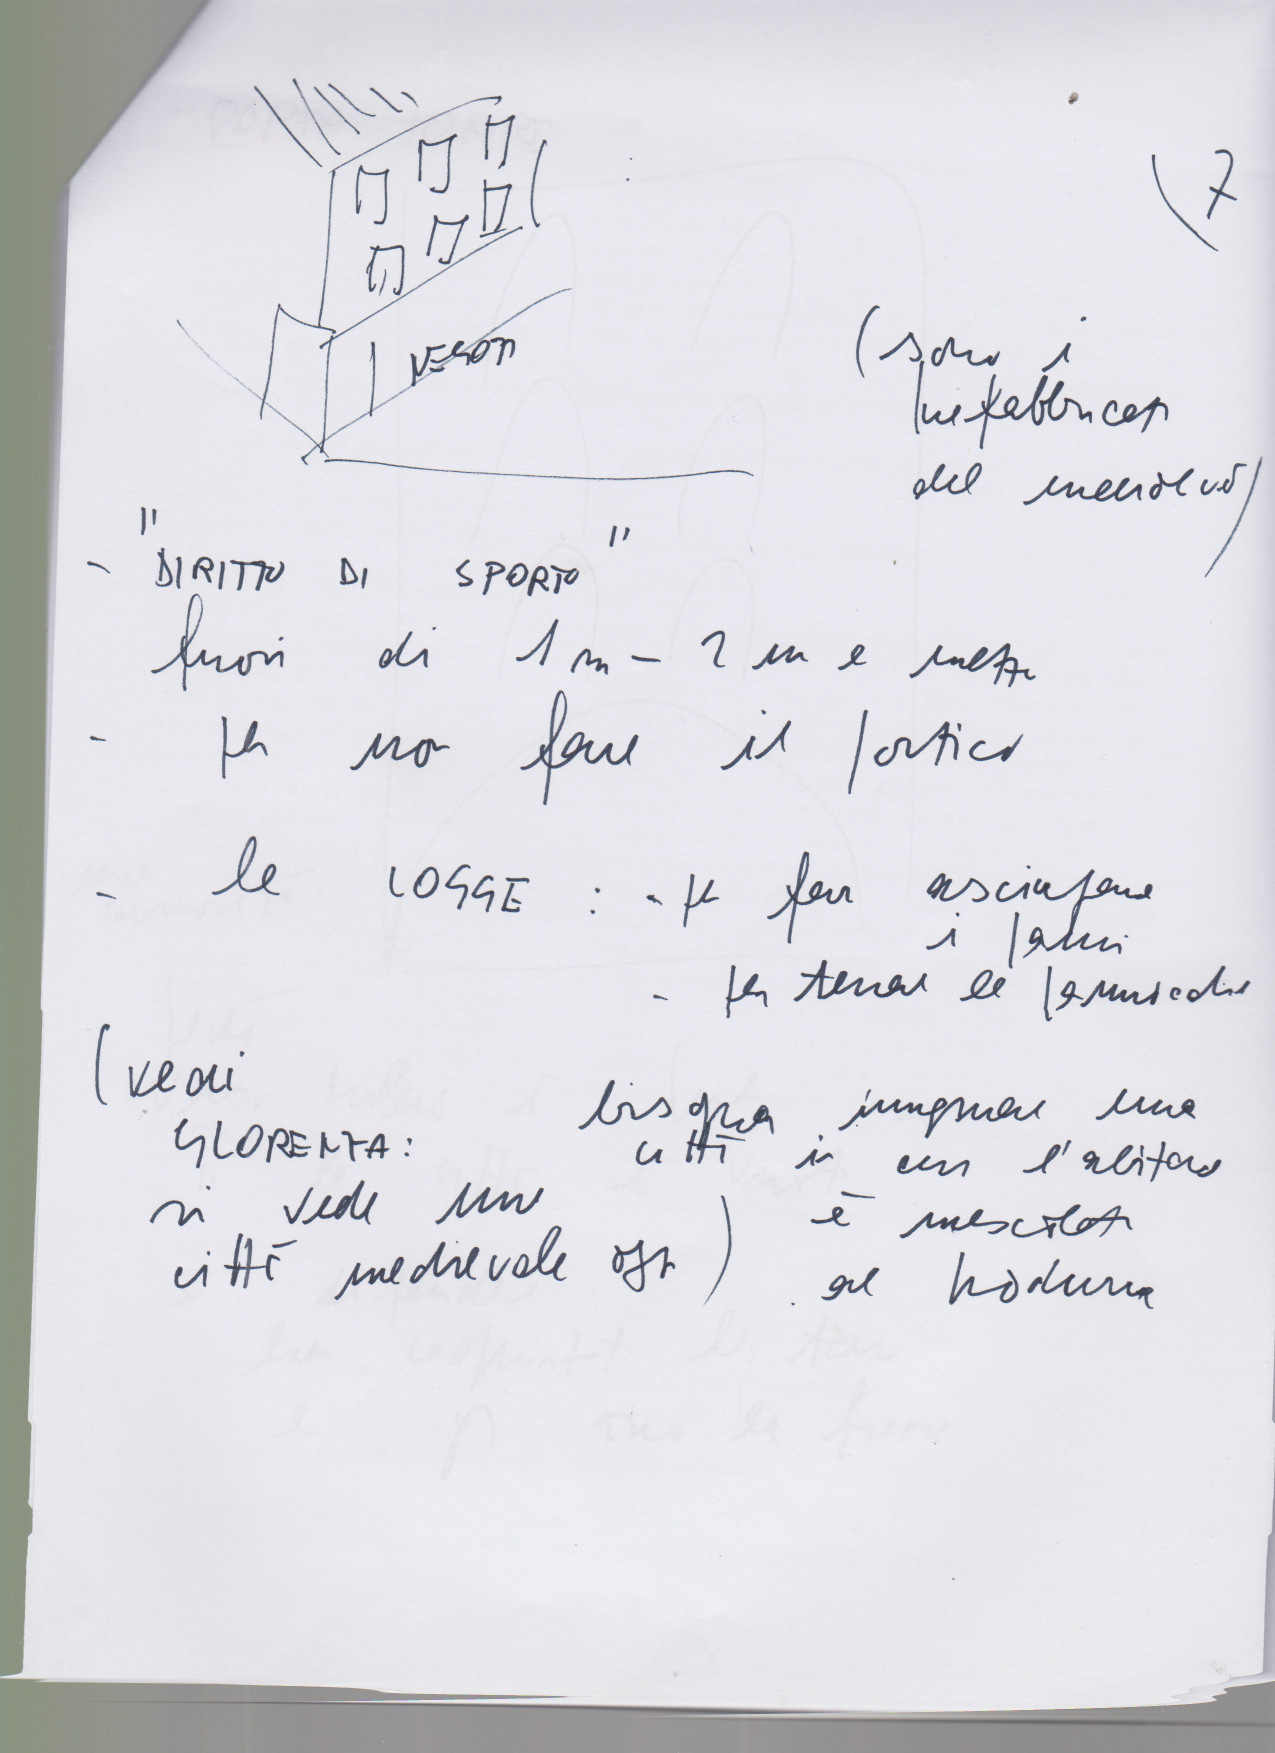 7
NEGOZI
(sono i
prefabbricati
del medioevo)
- "DIRITTO DI SPORTO"
fuori di 1 m - 2 m e mezzo
- per non fare il portico
- le LOGGE : - per far asciugare
i panni
- per tenere le
(vedi
GLORENZA:
si vede una
città medievale oggi)
bisogna immaginare una
città in cui l'abitare
è mescolato
al produrre